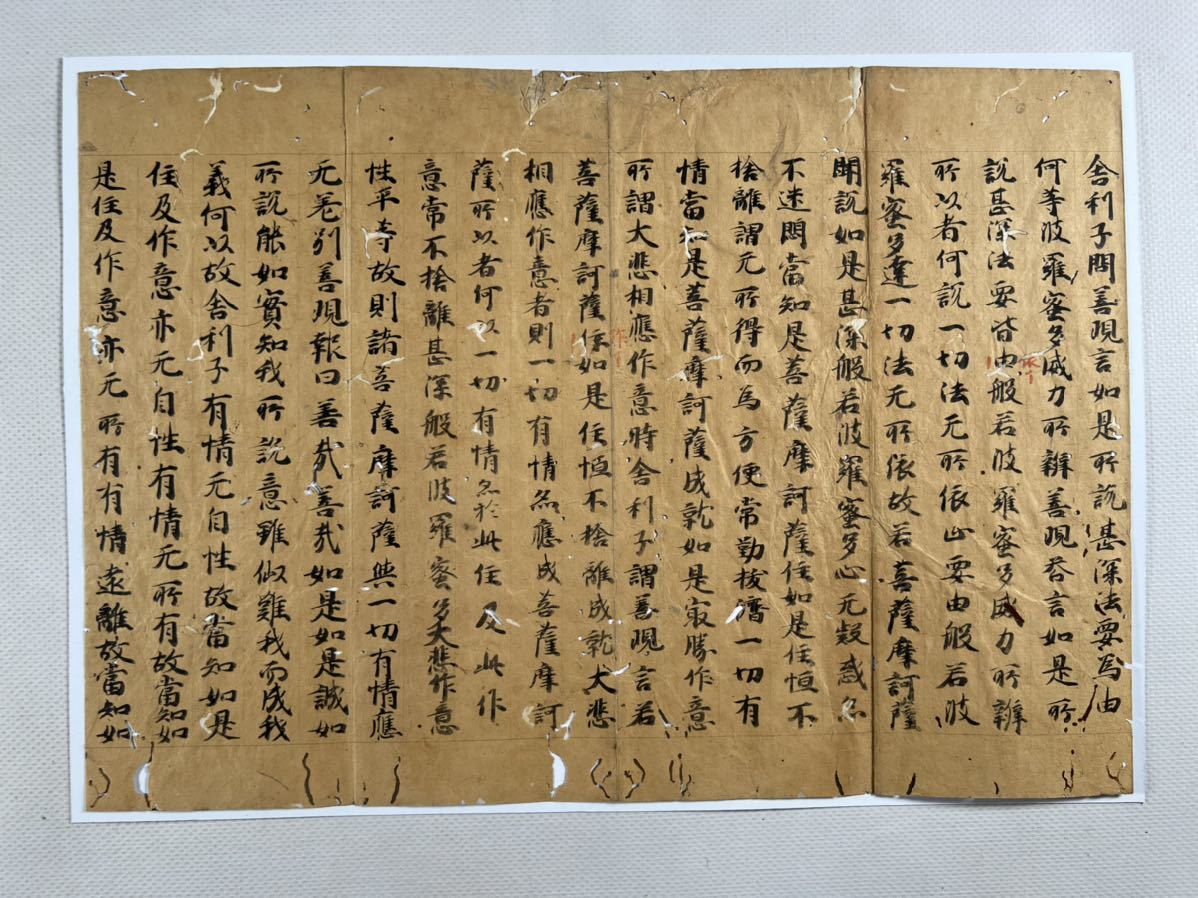 舎利子問善現言如是所說甚深法要為由
何等波羅蜜多威力所辦善現荅言如是所
說甚深法要皆由般若波羅蜜多威力所辦
所以者何說一切法无所依止要由般若波
羅蜜多達一切法无所依故若菩薩摩訶薩
聞說如是甚深般若波羅蜜多心无疑惑亦
不迷悶當知是菩薩摩訶薩住如是住恒不
捨離謂无所得而為方便常勤拔濟一切有
情當知是菩薩摩訶薩成就如是最勝作意
所謂大悲相應作意時舎利子謂善現言若
菩薩摩訶薩住如是住恒不捨離成就大悲
相應作意者則一切有情亦應成菩薩摩訶
薩所以者何以一切有情亦於此住及此作
意常不捨離甚深般若波羅蜜多大悲作意
性平等故則諸菩薩摩訶薩與一切有情應
无差別善現報曰善哉善哉如是如是誠如
所說能如實知我所說意雖似難我而成我
義何以故舎利子有情无自性故當知如是
住及作意亦无自性有情无所有故當知如
是住及作意亦无所有有情遠離故當知如